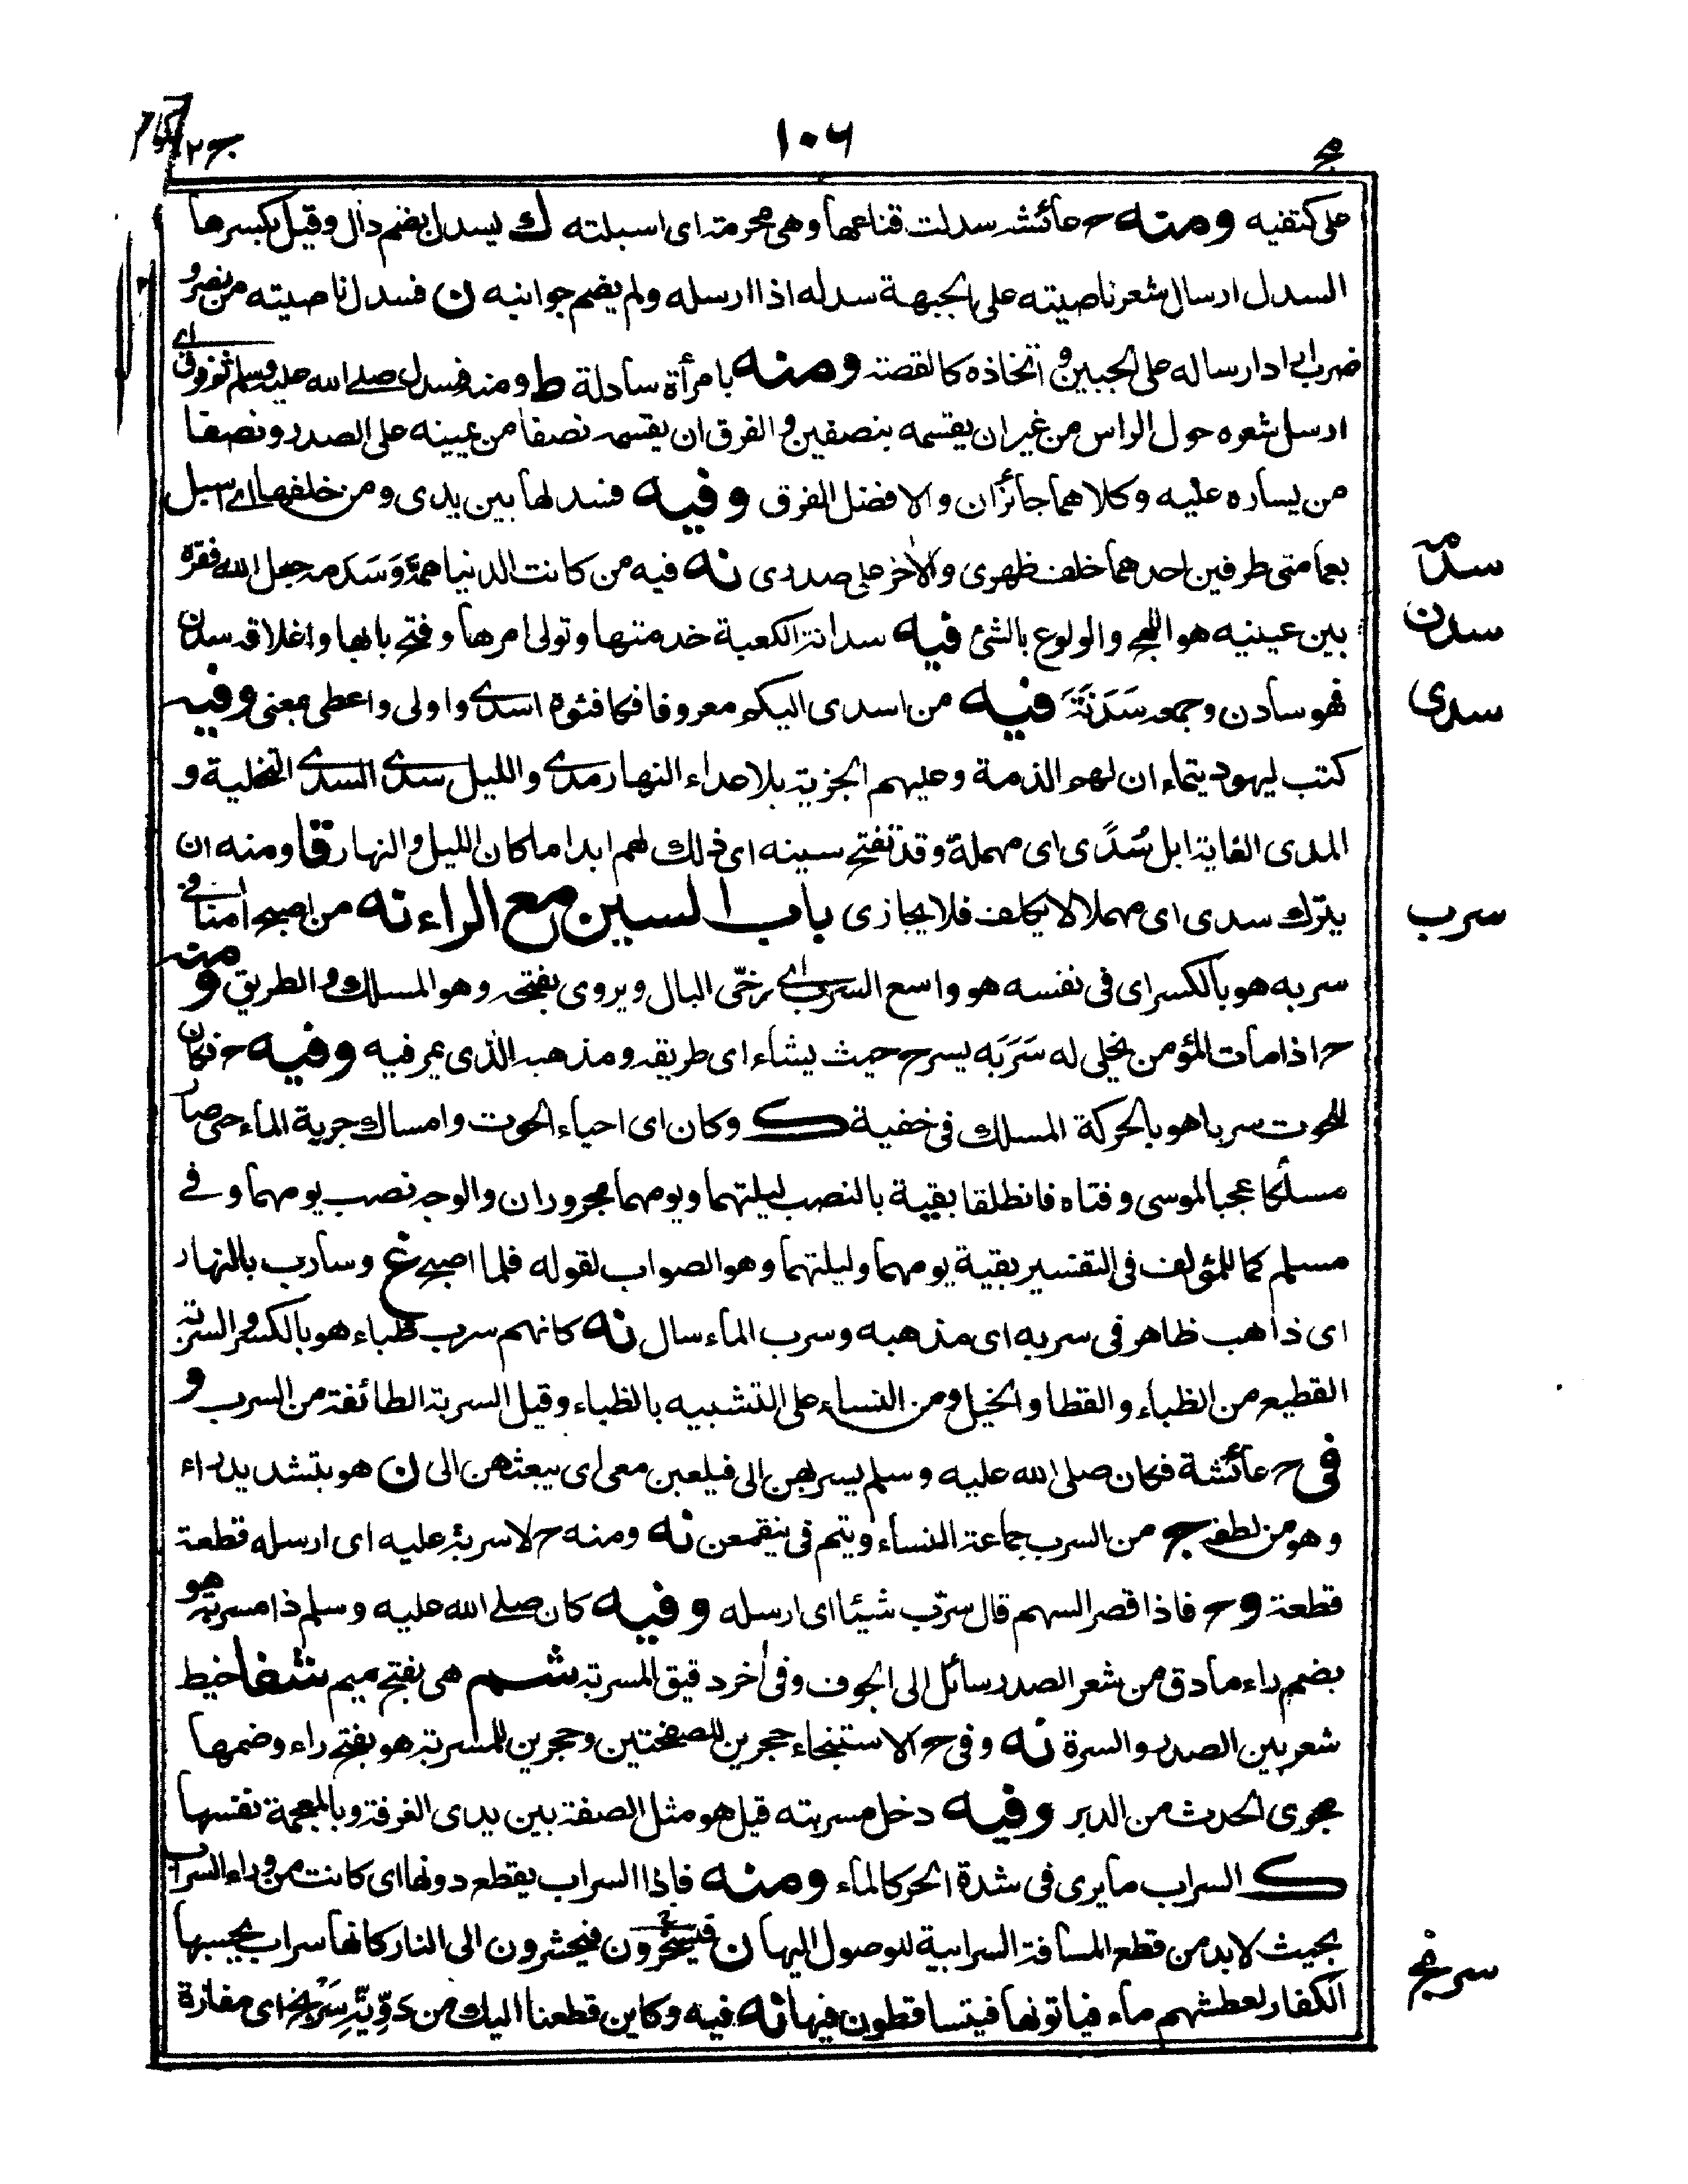 مج
١٠٦
ج٢
على كتفيه ومنه ح عائشة سدلت قناعها وهي محرمة اى اسبلته ك يسدل بضم دال وقيل بكسرها
السدل ارسال شعر ناصيته على الجبهة سدله اذا ارسله ولم يضم جوانبه ن فسدل ناصيته من نصر و
ضرب اى ارساله على الجبين واتخاذه كالقصة ومنه بامرأة سادلة ط ومنه فسدل صلى الله عليه وسلم ثم فرق اى
ارسل شعره حول الراس من غير ان يقسمه بنصفين والفرق ان يقسمه نصفا من يمينه على الصدر ونصفا
من يساره عليه وكلاهما جائزان والافضل الفرق وفيه فسدلها بين يدى ومن خلفها اى اسبل
سدم
بعمامتى طرفين احدهما خلف ظهرى والآخر على صدرى نه فيه من كانت الدنيا همّه وسَدَمه جعل الله فقره
سدن
بين عينيه هو اللهج والولوع بالشئ فيه سدانة الكعبة خدمتها وتولى امرها وفتح بابها واغلاقه سدن
سدى
فهو سادن وجمعه سَدَنَة فيه من اسدى اليكم معروفا فكافئوه اسدى واولى واعطى بمعنى وفيه
كتب ليهود تيماء ان لهم الذمة وعليهم الجزية بلا عداء النهار مدى والليل سدى السدى التخلية و
المدى الغاية ابل سُدًى اى مهملة وقد تفتح سينه اى ذلك لهم ابدا ما كان الليل والنهار قا ومنه ان
سرب
يترك سدى اى مهملا لا يكلف فلا يجازى باب السين مع الراء نه من اصبح امنا فى
سربه هو بالكسر اى فى نفسه هو واسع السرب اى رخىّ البال ويروى بفتحه وهو المسلك والطريق ومنه
ح اذا مات المؤمن يخلى له سَرَبَه يسرح حيث يشاء اى طريقه ومذهبه الذى يمر فيه وفيه ح فكان
للحوت سربا هو بالحركة المسلك فى خفية ك وكان اى احياء الحوت وامساك جرية الماء حتى صار
مسلكا عجبا لموسى وفتاه فانطلقا بقية بالنصب ليلتهما ويومهما مجروران والوجه نصب يومهما وفى
مسلم كما للمؤلف فى التفسير بقية يومهما وليلتهما وهو الصواب لقوله فلما اصبح غ وسارب بالنهار
اى ذاهب ظاهر فى سربه اى مذهبه وسرب الماء سال نه كانهم سرب ظباء هو بالكسر والسربة
القطيع من الظباء والقطا والخيل ومن النساء على التشبيه بالظباء وقيل السربة الطائفة من السرب و
فى ح عائشة فكان صلى الله عليه وسلم يسربهن الى فيلعبن معى اى يبعثهن الى ن هو بتشديد راء
وهو من لطفه ج من السرب جماعة النساء ويتم فى ينقمعن نه ومنه ح لاسربه عليه اى ارسله قطعة
قطعة وح فاذا قصر السهم قال سرّب شيئا اى ارسله وفيه كان صلى الله عليه وسلم ذا مسربة هو
بضم راء ما دق من شعر الصدر سائلا الى الجوف وفى أخر دقيق المسربة شم هى بفتح ميم شفا خيط
شعر بين الصدر والسرة نه وفى ح الاستنجاء حجرين للصفحتين وحجرين للمسربة هو بفتح راء وضمها
مجرى الحدث من الدبر وفيه دخل مسربته قيل هو مثل الصفة بين يدى الغرفة وبالمعجمة نفسها
ك السراب ما يرى فى شدة الحر كالماء ومنه فاذا السراب يقطع دونها اى كانت من وراء السراب
بحيث لا بد من قطع المسافة السرابية للوصول اليها ن فيحشرون الى النار كانها سراب يحسبها
سربخ
الكفار لعطشهم ماء فياتونها فيتساقطون فيها نه فيه وكاين قطعنا اليك من دَوِّيَّةِ سَرْبَخ اى مفازة